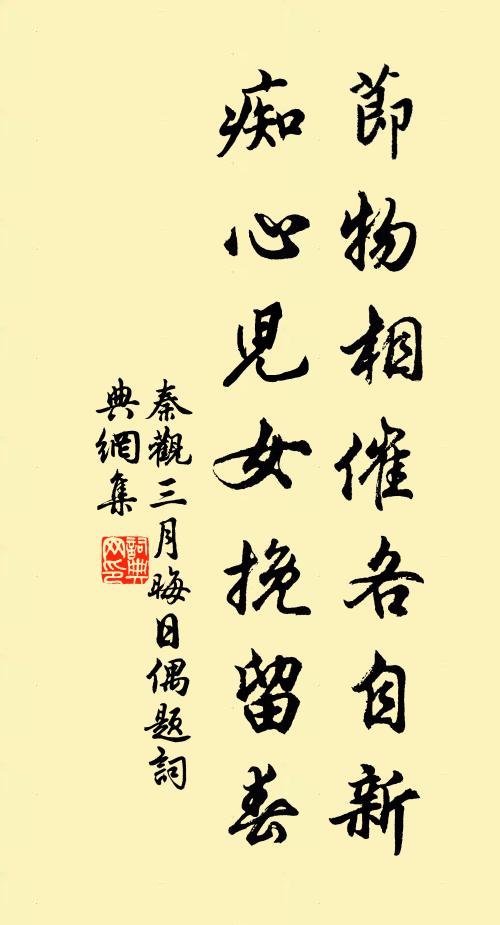 節物相催各自新
痴心兒女挽留春
秦觀三月晦日偶題詞
典網集
詞典
网印